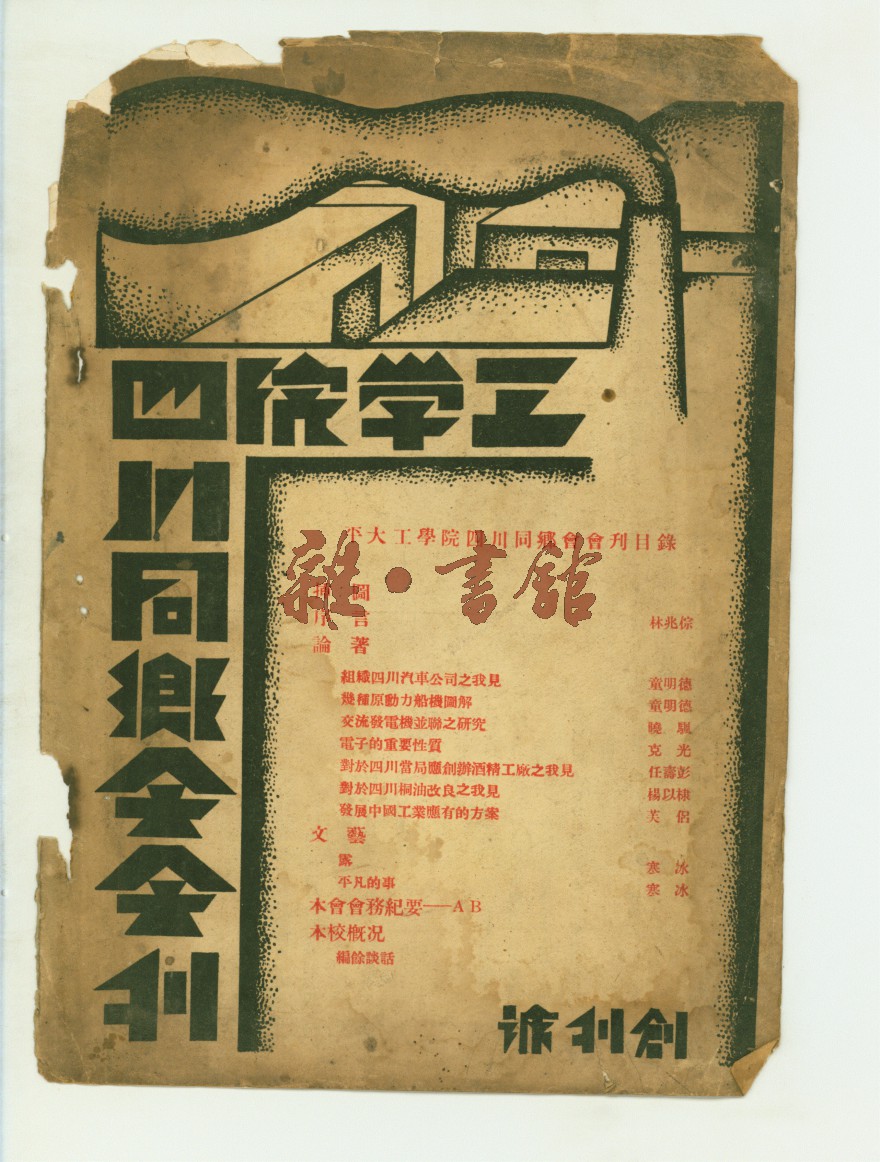 工学院
四川同鄉会会刊
平大工學院四川同鄉會會刊目錄
雜·書館
插圖
序言 林兆倧
論著
組織四川汽車公司之我見 童明德
幾種原動力船機圖解 童明德
交流發電機並聯之研究 曉
電子的重要性質 克光
對於四川當局應創辦酒精工廠之我見 任壽彭
對於四川桐油改良之我見 楊以棣
發展中國工業應有的方案 芙侶
文藝
露 寒冰
平凡的事 寒冰
本會會務紀要——AB
本校概况
編餘談話
創刊號